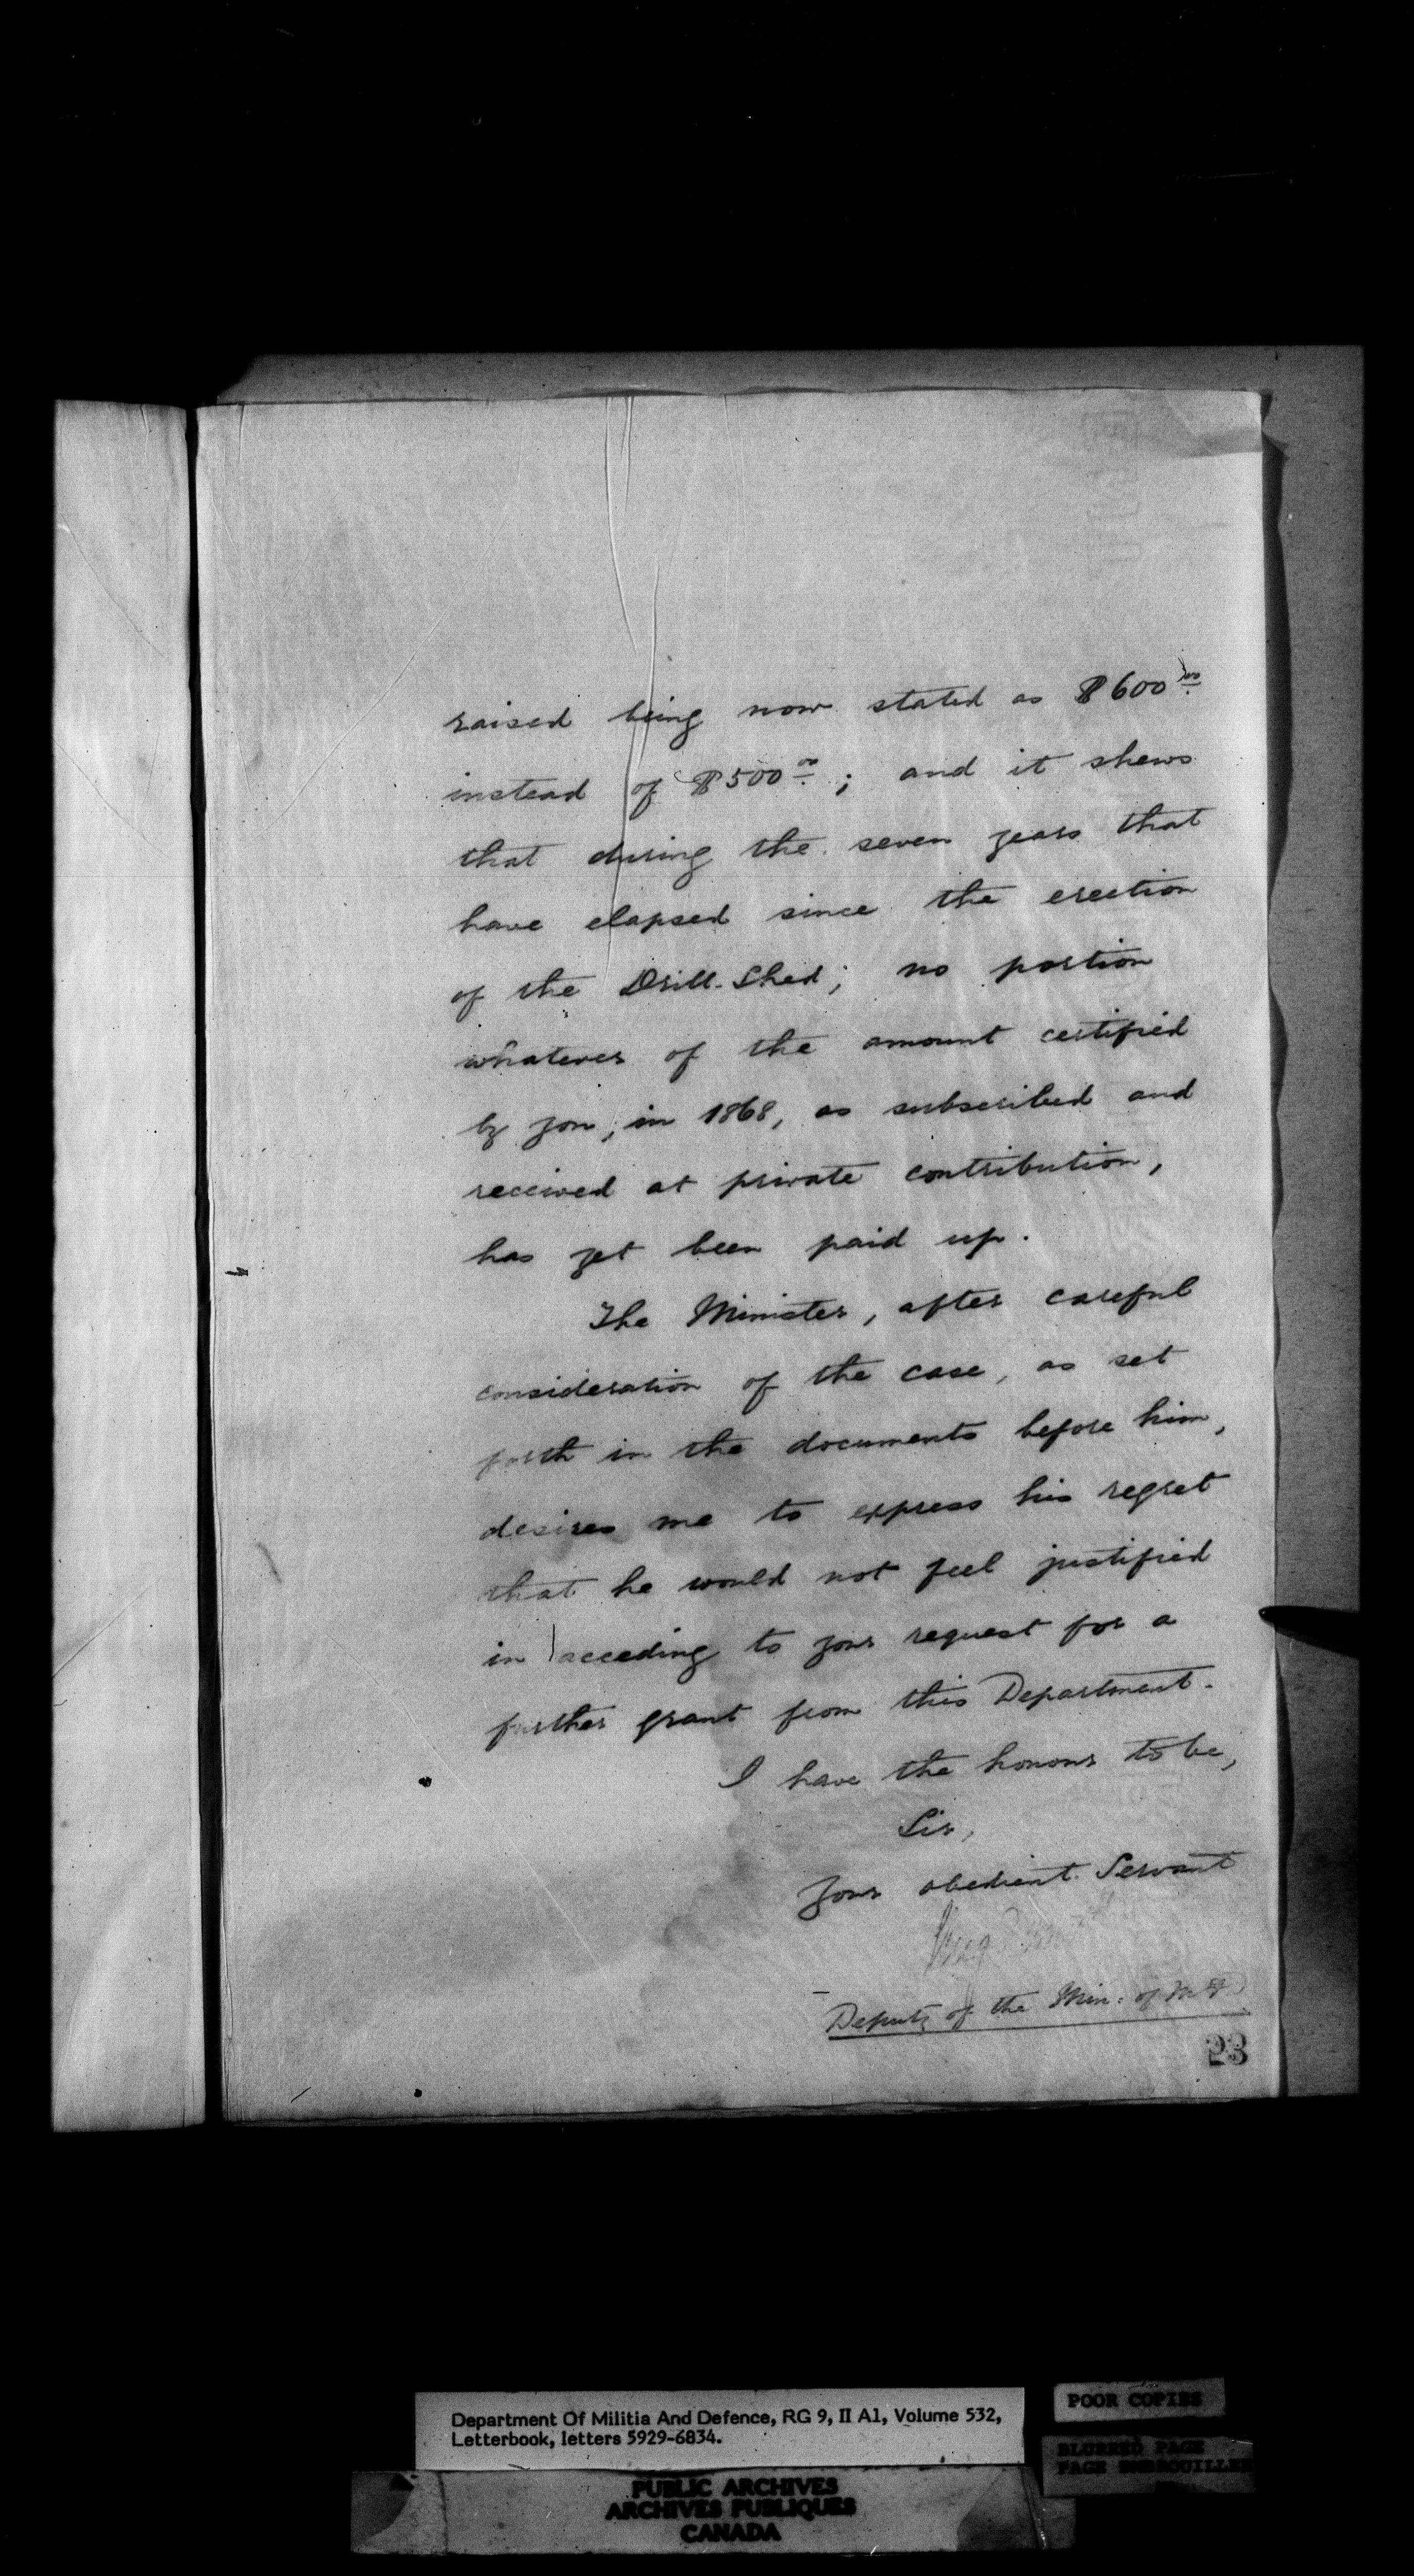 raised being now stated as $600.00
instead of $500.00; and it shews
that during the seven years that
have elapsed since the erection
of the Drill-Shed; no portion
whatever of the amount certified
by you, in 1868, as subscribed and
received at private contribution,
has yet been paid up.
The Minister, after careful
consideration of the case, as set
forth in the documents before him,
desires me to express his regret
that he would not feel justified
in acceding to your request for a
further grant from this Department.
I have the honour to be,
Sir,
Your obedient Servant
Deputy of the Min: of M & D
23
Department Of Militia And Defence, RG 9, II A1, Volume 532,
Letterbook, letters 5929-6834.
POOR COPIES
BLURRED PAGE
PAGE EMBROUILLEE
PUBLIC ARCHIVES
ARCHIVES PUBLIQUES
CANADA